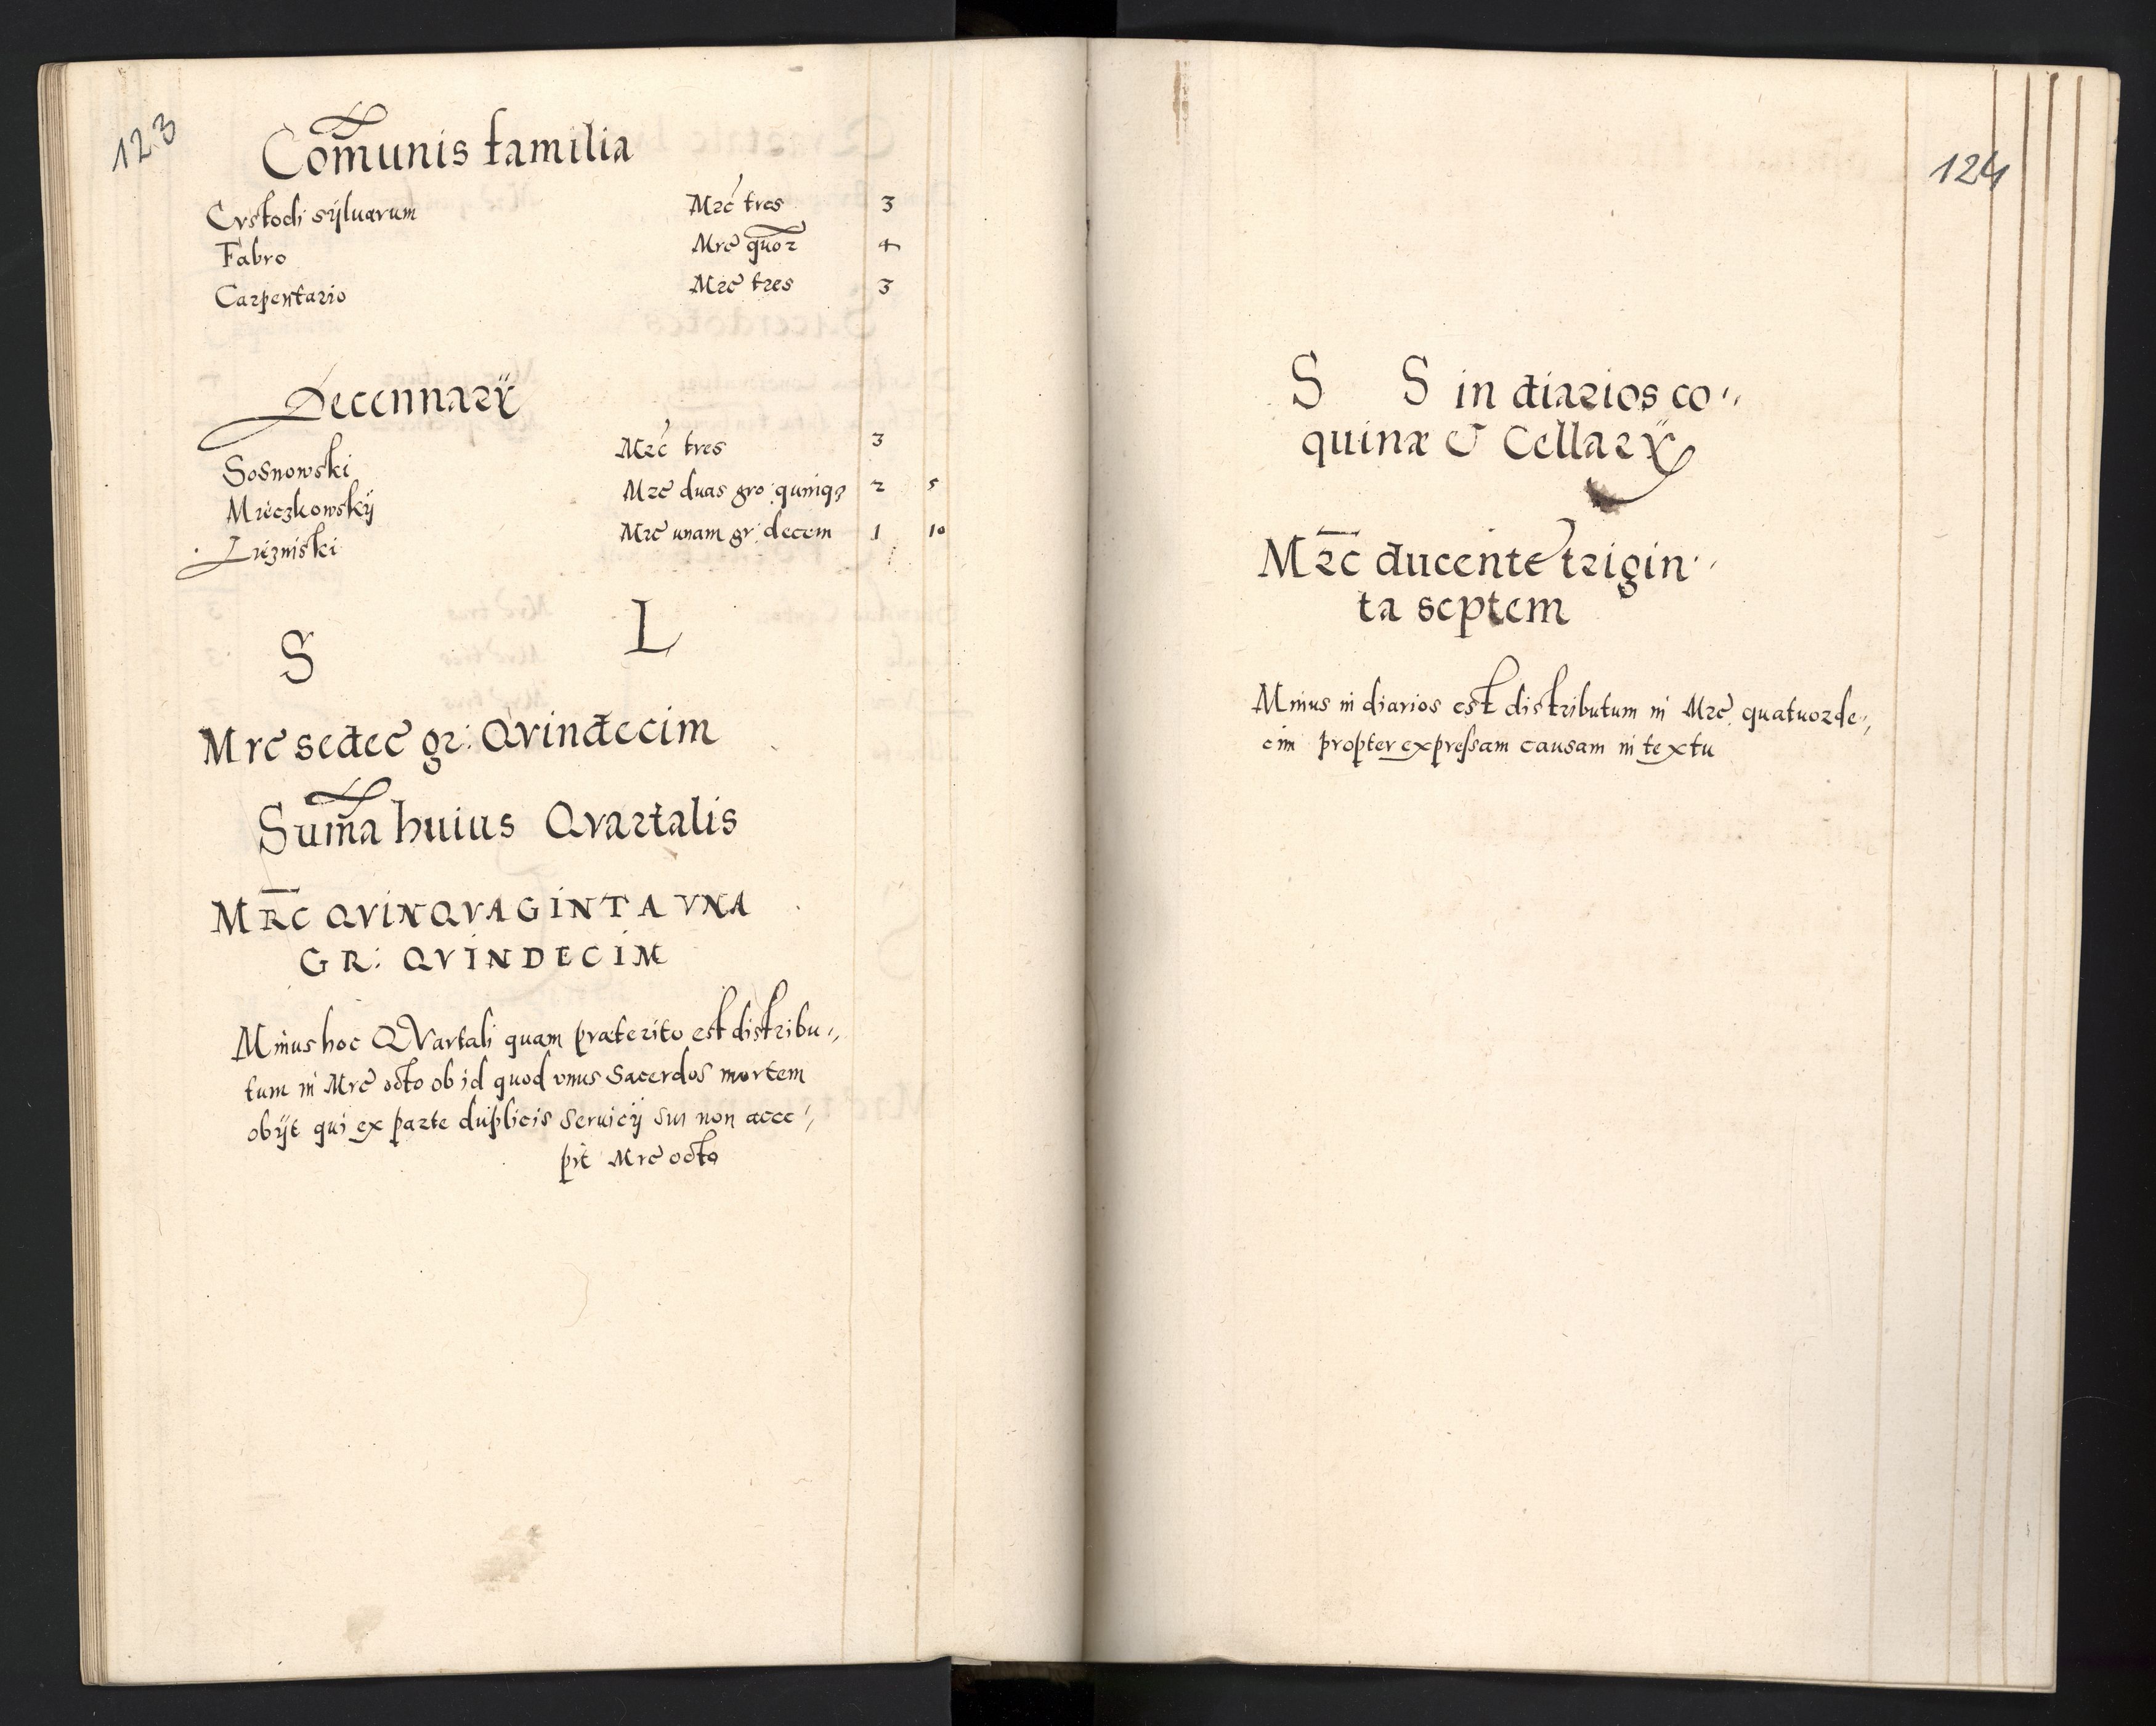 123
Com̃unis familia
Cvstodi sÿluarum Mrc̃ tres 3
Fabro Mrc̃ quõr 4
Carpentario Mrc̃ tres 3
Decennarÿ
Sosnowski Mrc̃ tres 3
Mrèczkowskÿ Mrc̃ duas gro: quinqz 2 5
Mrc̃ unam gr: decem 1 10
S L
Mrc̃ sedec̃ gr: Qvindecim
Sum̃a huius Qvartalis
MR̃C QVINQVAGINTA VNA
GR: QVINDECIM
Minus hoc QVartali quam præterito est distribu„
tum in Mrc̃ octo ob id quod vnus Sacerdos mortem
obÿt qui ex parte duplicis Seruicÿ sui non acce„
pit Mrc̃ octo
124
S S in diarios co„
quinæ & Cellarÿ
Mr̃c ducente trigin„
ta septem
Minus in diarios est distributum in Mrc̃ quatuorde„
cim propter expressam causam in textu